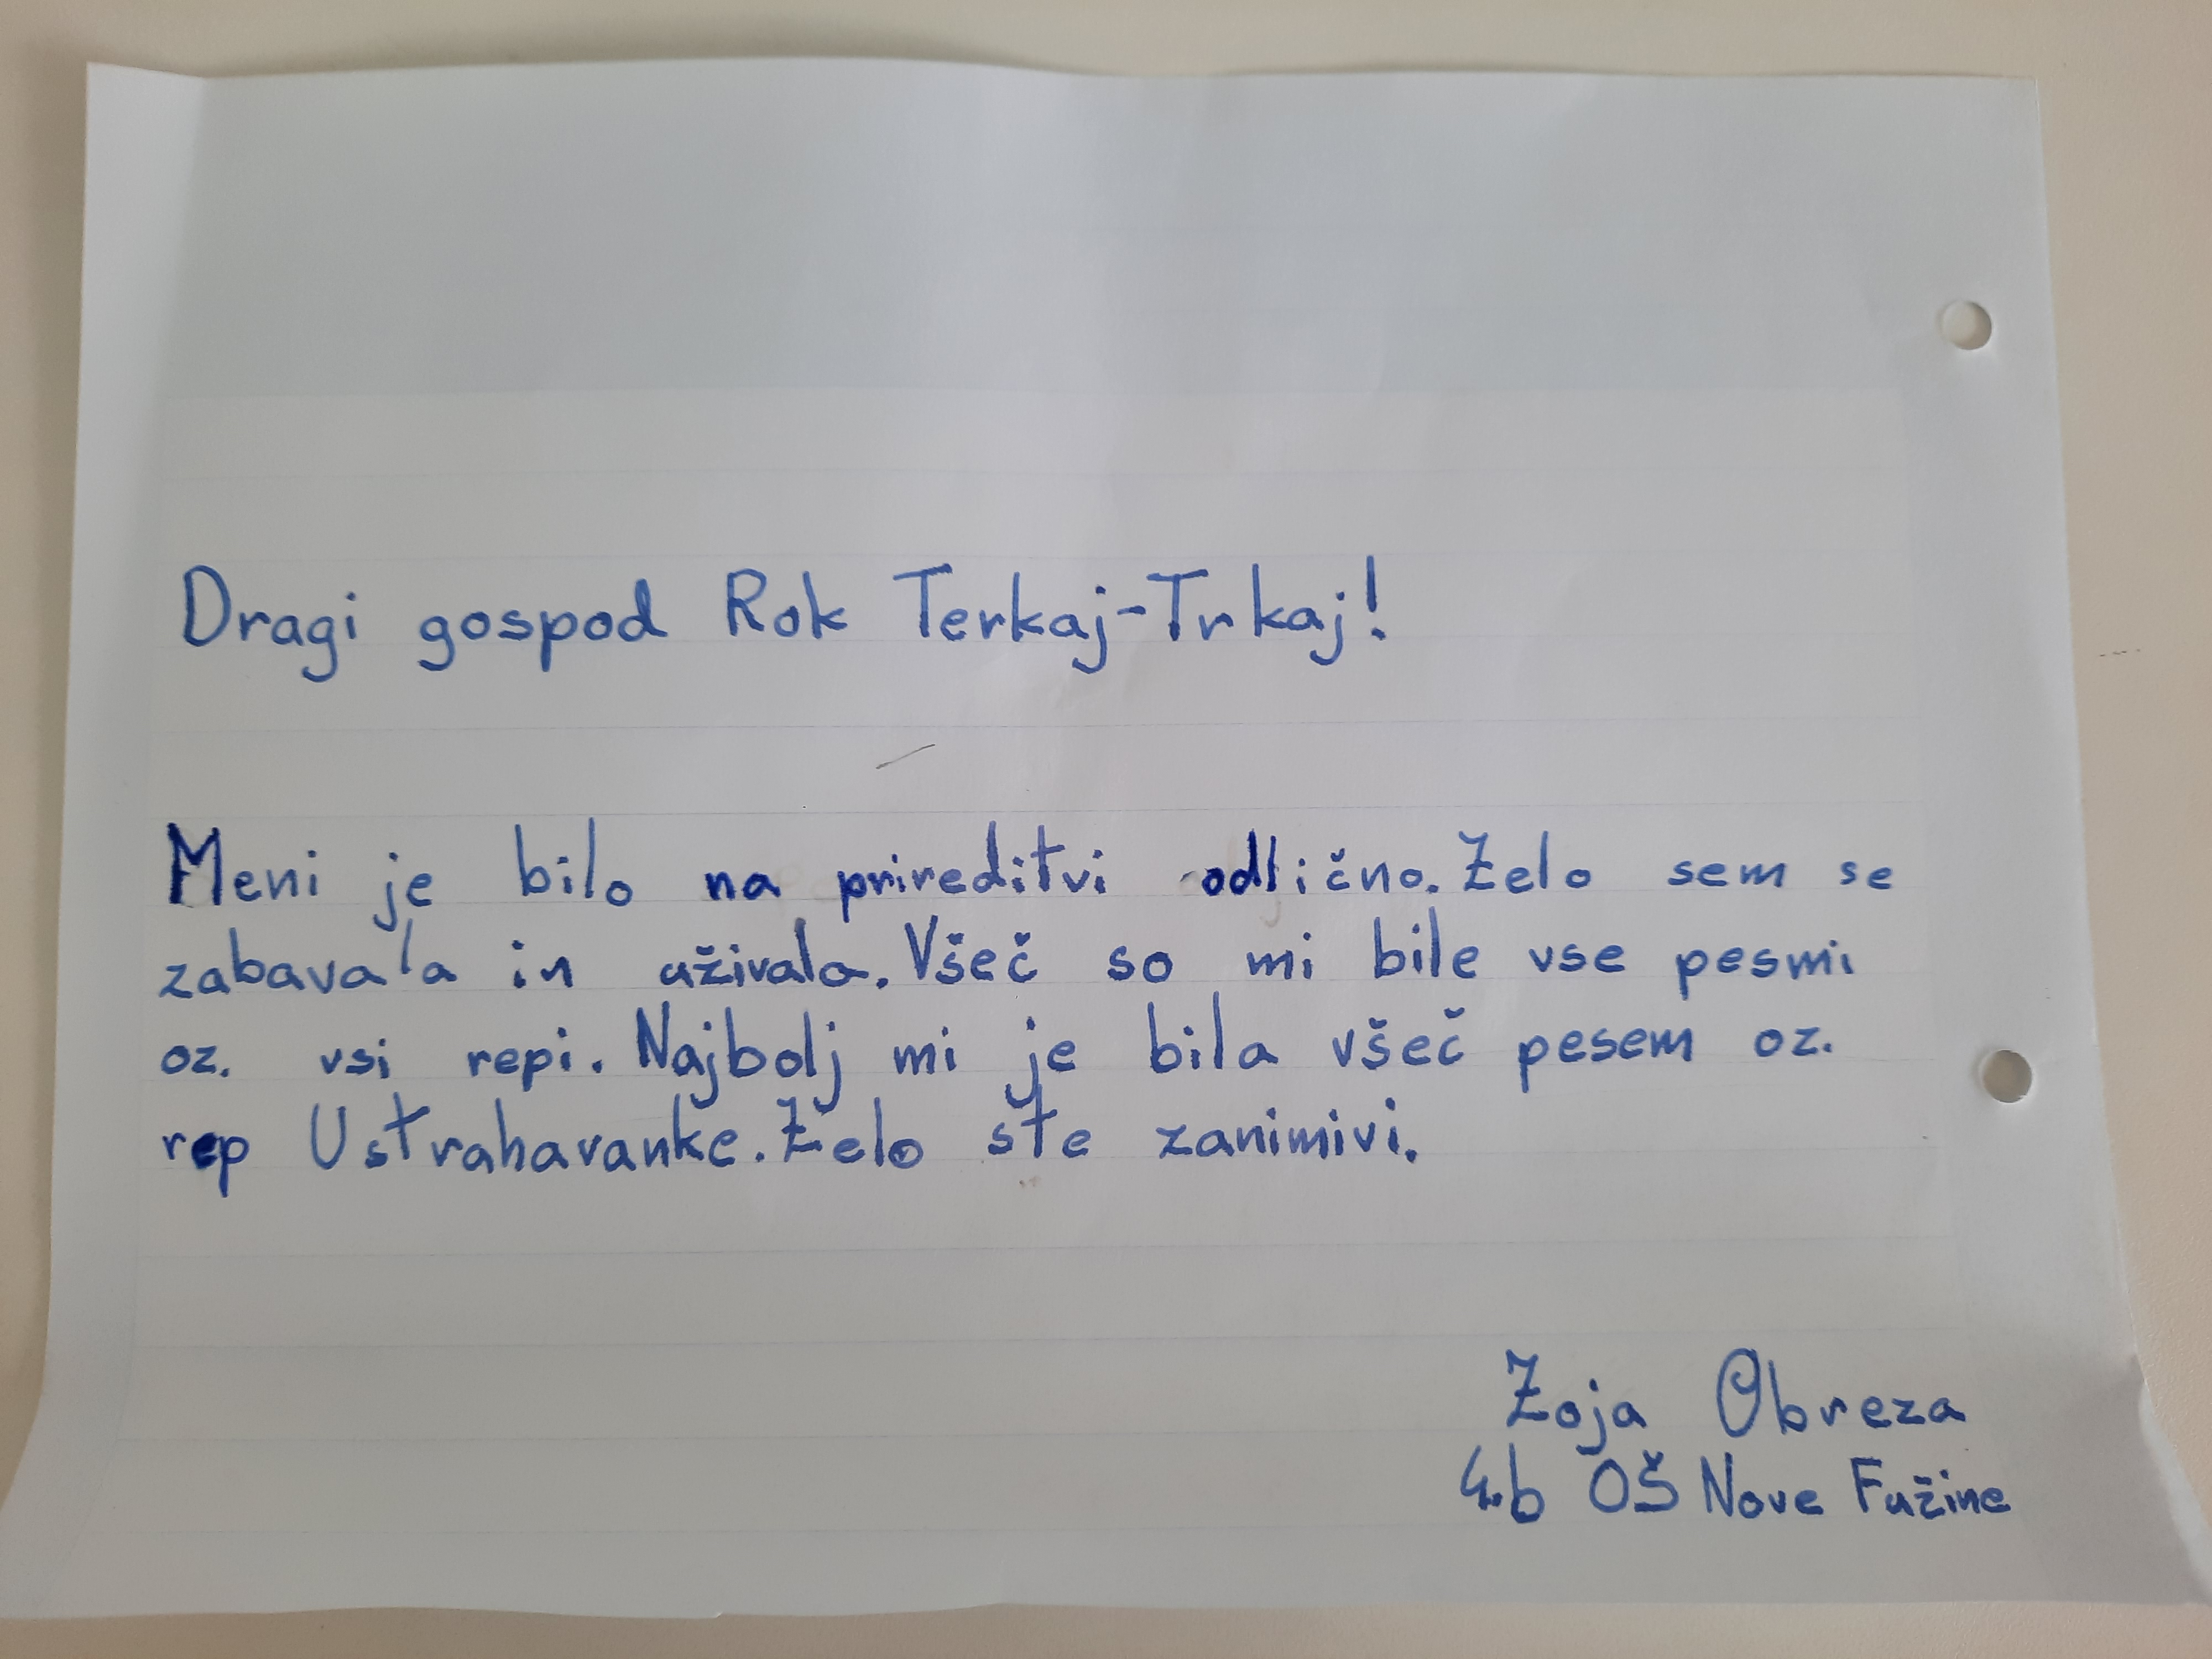 Dragi gospod Rok Terkaj-Trkaj!
Meni je bilo na prireditvi odlično. Zelo sem se
zabavala in uživala. Všeč so mi bile vse pesmi
oz. vsi repi. Najbolj mi je bila všeč pesem oz.
rep Ustrahavanke. Zelo ste zanimivi.
Zoja Obreza
4.b OŠ Nove Fužine